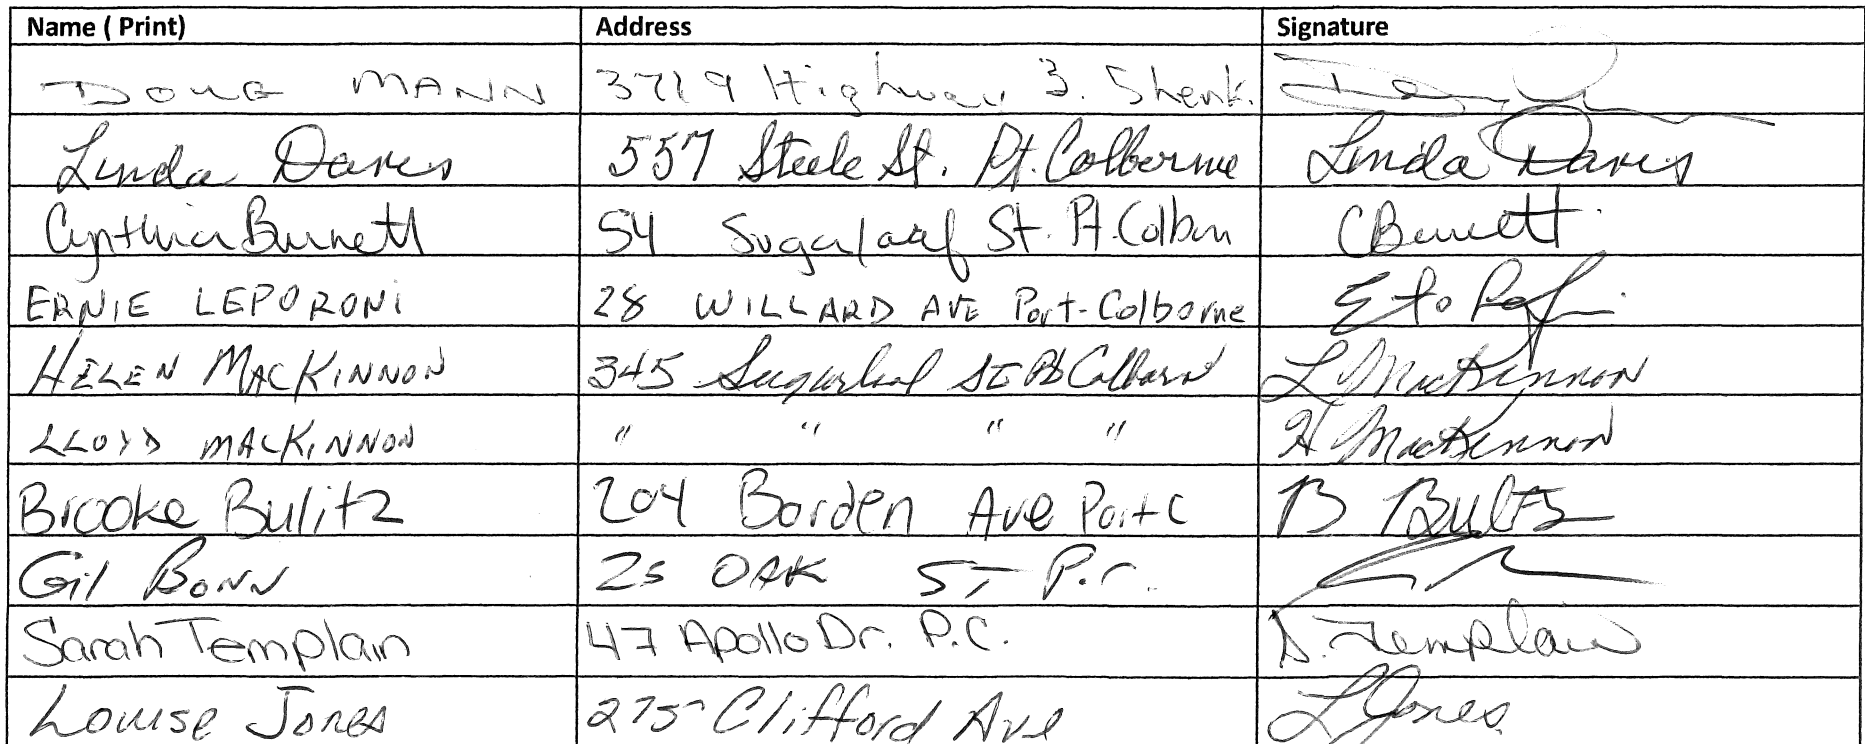 Name ( Print) Address Signature
DOUG MANN 3719 Highway 3. Sherk.
Linda Daves 557 Steele St. Pt. Colborne Linda Daves
Cynthia Burnett 54 Sugarloaf St. Pt. Colborn CBurnett
ERNIE LEPORONI 28 WILLARD AVE Port-Colborne
HELEN MACKINNON 345 Sugarloaf St Pt Colborn L MacKinnon
LLOYD MACKINNON " " " " H MacKinnon
Brooke Bulitz 204 Borden Ave Port C B Bulitz
Gil BONN 25 OAK ST P.C.
Sarah Templain 47 Apollo Dr. P.C. S. Templain
Louise Jones 275 Clifford Ave L Jones